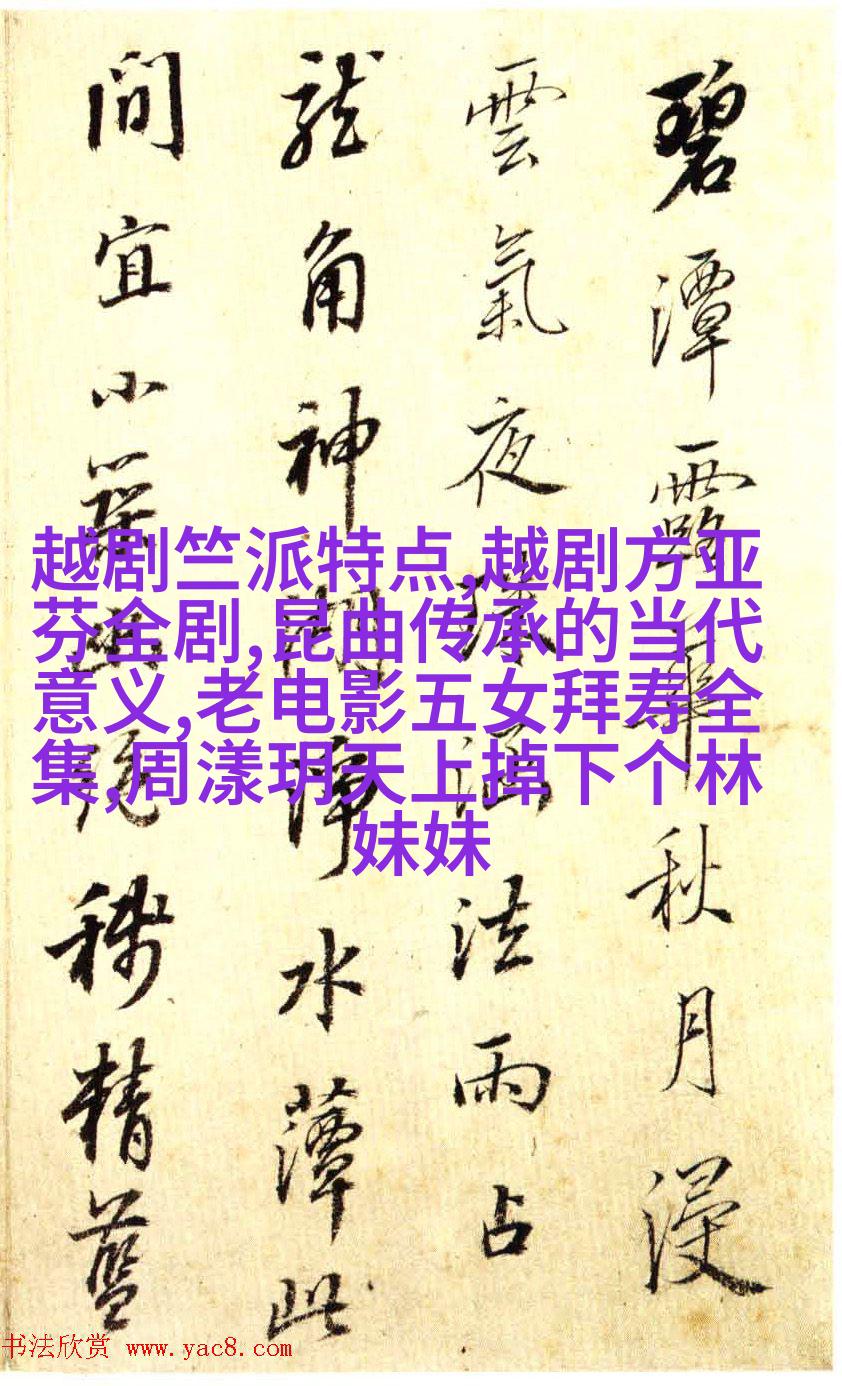 碧潭露華秋月浸
雲氣夜涵法雨占
龍角神淨水蕈此
間宜小築幽絕精藍
越剧竺派特点,越剧方亚
芬全剧,昆曲传承的当代
意义,老电影五女拜寿全
集,周漾玥天上掉下个林
妹妹
书法欣赏 www.yac8.com